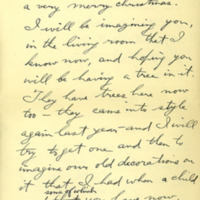 a very merry christmas.
I will be imagining you,
in the living room that I
know now, and hoping you
will be having a tree in it.
They have trees here now
too - they came into style
again last year - and I will
try to get one and then to
imagine our old decorations on
it that I had when a child
some of which
you have now.